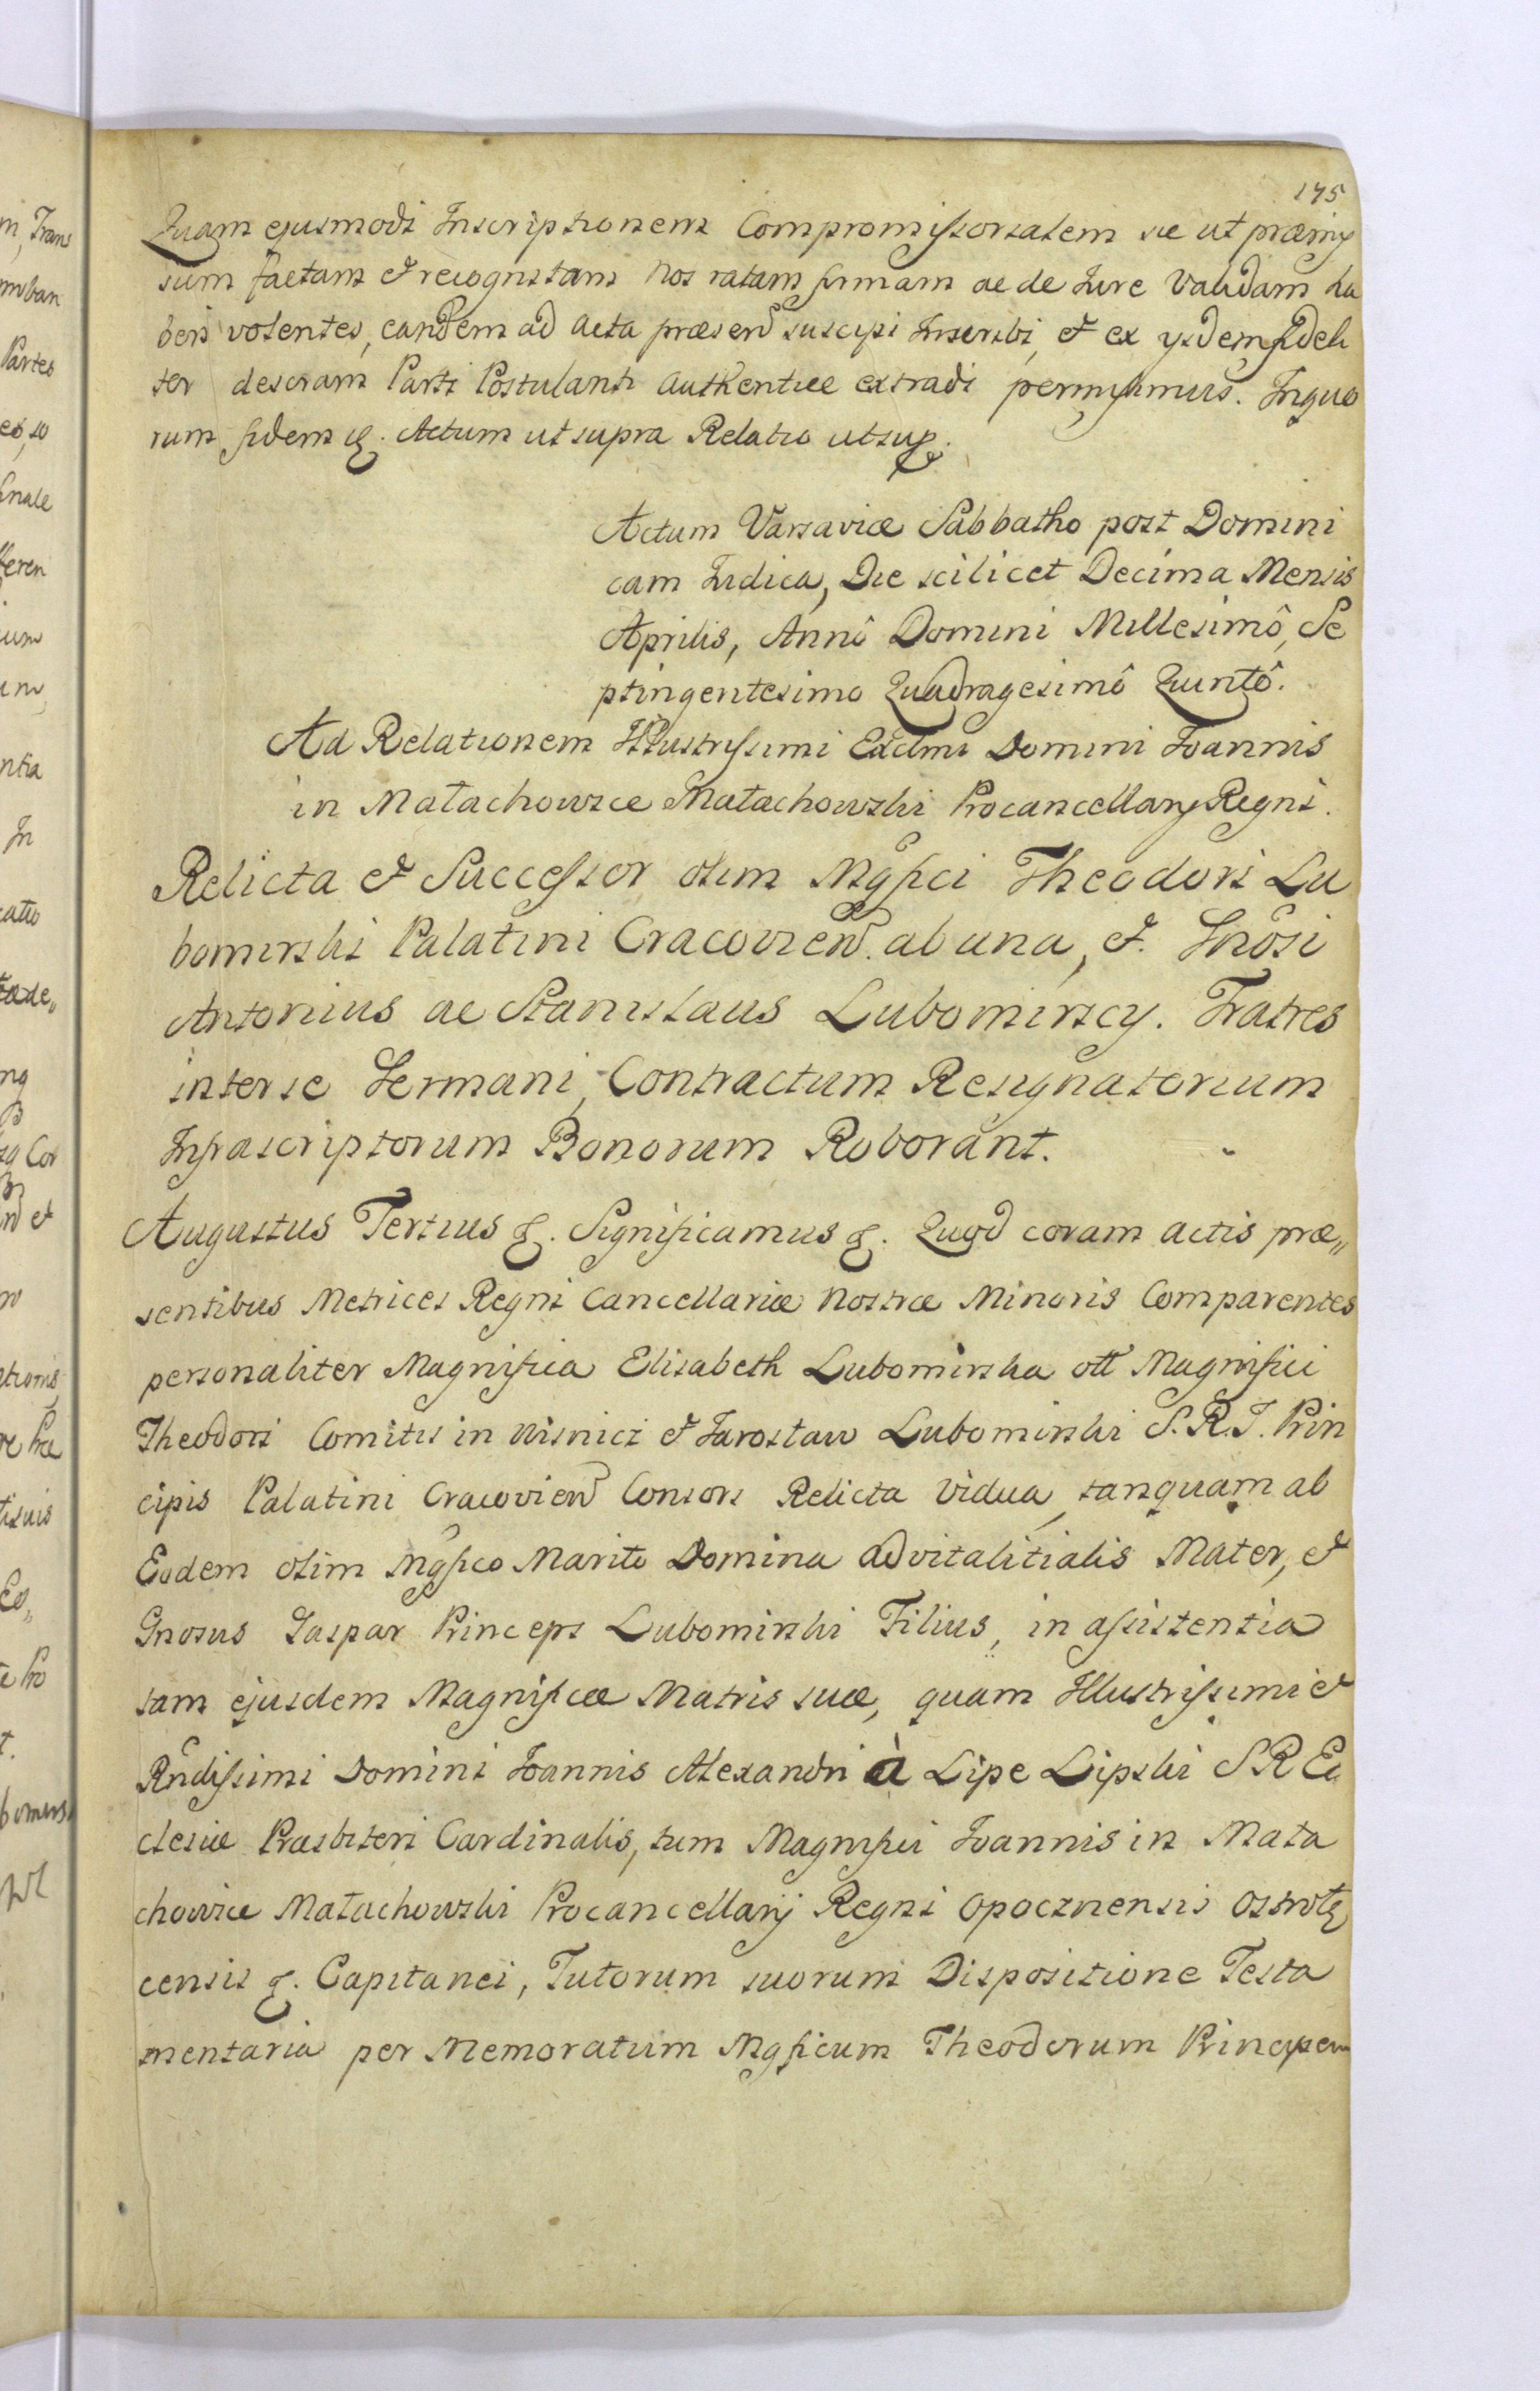 175
Quam ejusmodi Inscriptionem Compromissorialem sic ut præmis
sum factam et recognitam nos ratam firmam ac de Iure Validam ha
beri volentes, eandem ad Acta præsen suscipi Inscribi, et ex ysdem fideli
ter descriam Parti Postulanti authentice extradi permisimus. In quo
rum fidem &. Actum ut supra Relatio ut sup.
Actum Varsaviæ Sabbatho post Domini
cam Iudica, Die scilicet Decima Mensis
Aprilis, Annô Domini Millesimô, Se
ptingentesimo Quadragesimô Quintô.
Ad Relationem Illustrissimi Exclmi Domini Ioannis
in Małachowice Małachowski Procancellarij Regni.
Relicta et Successor olim Mgfici Theodori Lu
bomirski Palatini Cracovien. ab una, et Gnosi
Antonius ac Stanislaus Lubomirscy. Fratres
inter se Germani, Contractum Resignatorium
Infrascriptorum Bonorum Roborant.
Augustus Tertius &. Significamus &. Quod coram actis præ„
sentibus Metrices Regni Cancellariæ Nostræ Minoris Comparentes
personaliter Magnifica Elisabeth Lubomirska olt Magnifici
Theodori Comitis in Wisnicz et Iarosław Lubomirski S. R. I. Prin
cipis Palatini Cracovien Consors Relicta Vidua, tanquam ab
Eodem olim Mgfico Marito Domina advitalitialis Mater, et
Gnosus Gaspar Princeps Lubomirski Filius, in assistentia
tam ejusdem Magnificæ Matris suæ, quam Illustrissimi et
Rndissimi Domini Ioannis Alexandri à Lipe Lipski S R Ec
clesiæ Præsbiteri Cardinalis, tum Magnifici Ioannis in Mała
chowice Małachowski Procancellarij Regni Opocznensis Ostrołę
censis &. Capitanei, Tutorum suorum Dispositione Testa
mentaria per Memoratum Mgficum Theodorum Principem